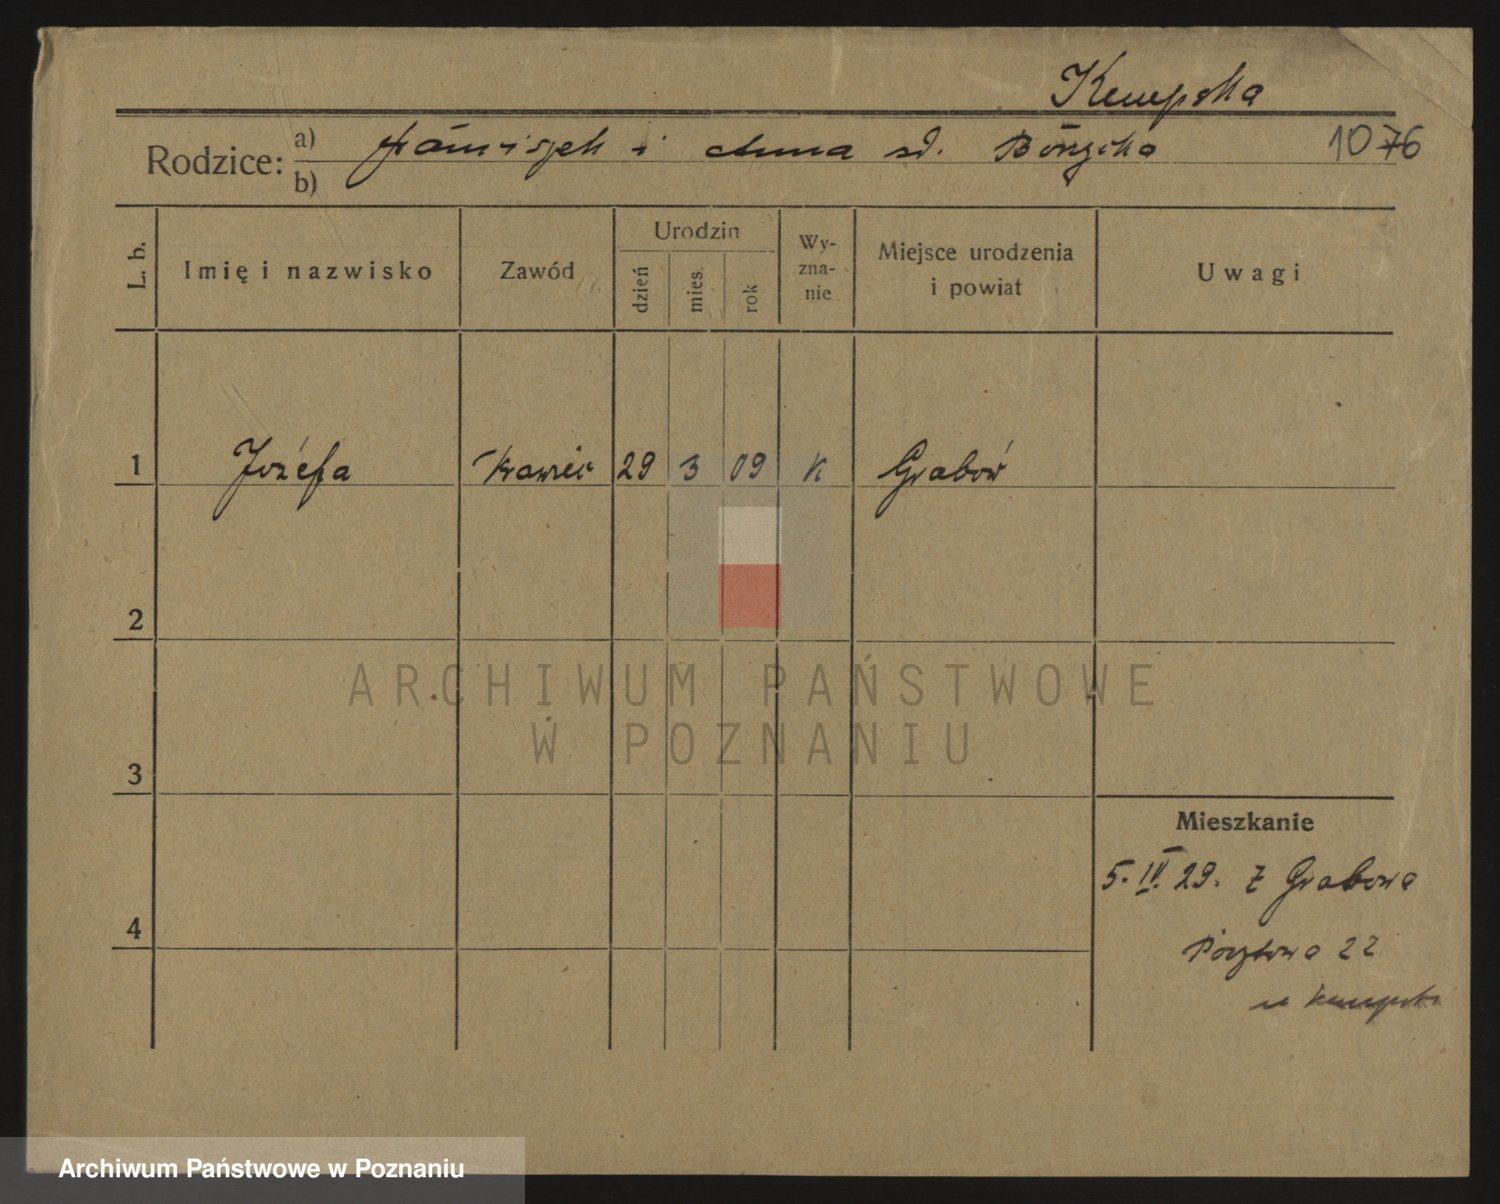 Kempska
Rodzice: a) Franciszek i Anna
b)
1076
L. b.
Imię i nazwisko
Zawód
Urodzin
dzień
mies.
rok
Wy-
zna-
nie
Miejsce urodzenia
i powiat
Uwagi
1 Józefa Krawiec 29 3 09 K Grabów
2
3
4
Mieszkanie
5. IV. 29. z Grabowa
Pocztowa 22
ARCHIWUM PAŃSTWOWE
W POZNANIU
Archiwum Państwowe w Poznaniu